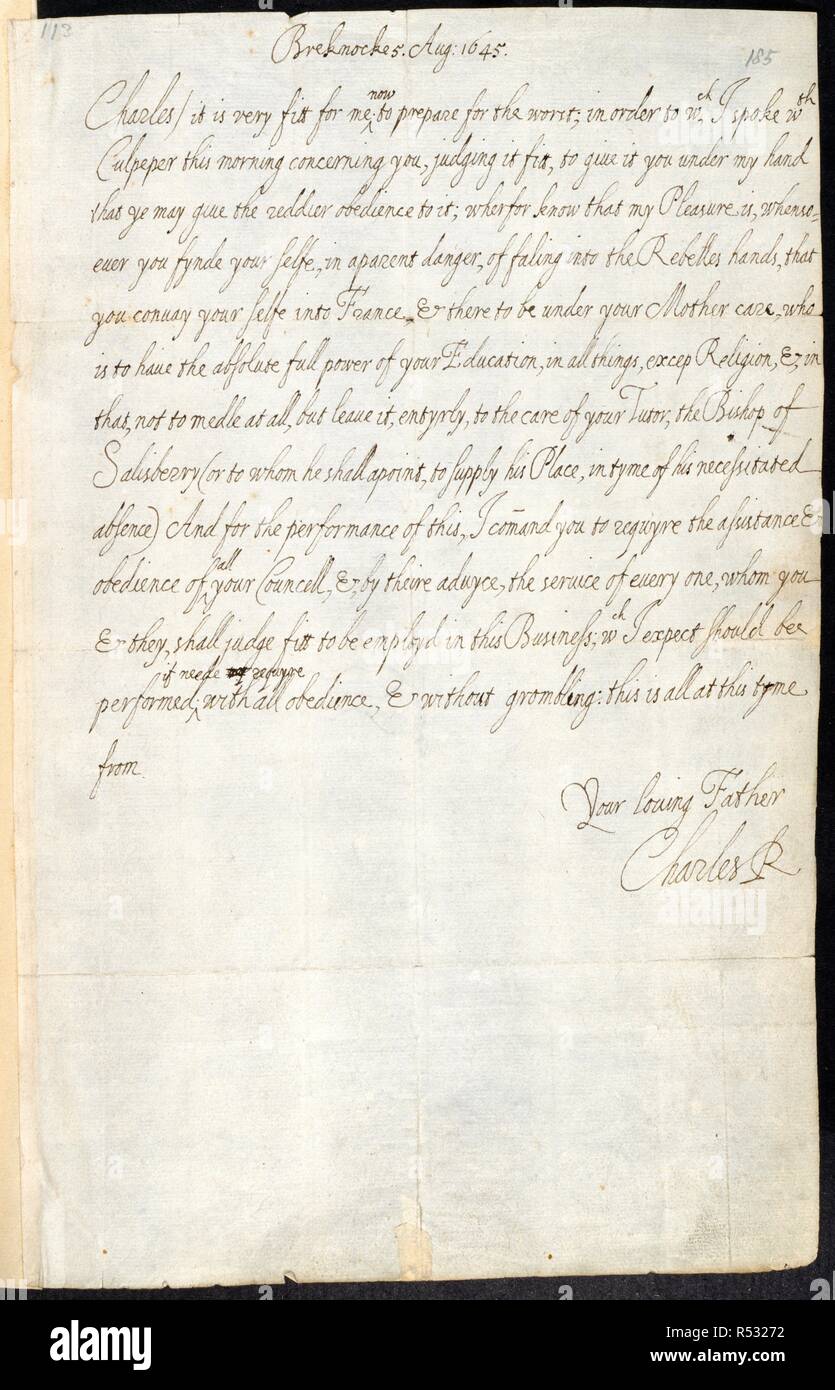 113
Breknocke 5. Aug: 1645.
185
Charles/ it is very fitt for me now to prepare for the worst; in order to wch, I spoke wth
Culpeper this morning concerning you, judging it fitt, to give it you under my hand
that ye may give the reddier obedience to it; wherfor know that my Pleasure is, whenso=
ever you fynde your selfe, in aparent danger, of faling into the Rebelles hands, that
you convay your selfe into France, & there to be under your Mother care, who
is to have the absolute full power of your Education, in all things, excep Religion, &, in
that, not to medle at all, but leave it, entyrly, to the care of your Tutor, the Bishop of
Salisberry (or to whom he shall apoint, to supply his Place, in tyme of his necessitated
absence) And for the performance of this, I com̄and you to requyre the assistance &
obedience of all your Councell, &, by theire advyce, the service of every one, whom you
& they, shall judge fitt to be employd in this Business; wch I expect should bee
performed, if neede requyre with all obedience, & without grombling: this is all at this tyme
from
Your loving Father
Charles R
alamy
alamy
Image ID: R53272
www.alamy.com